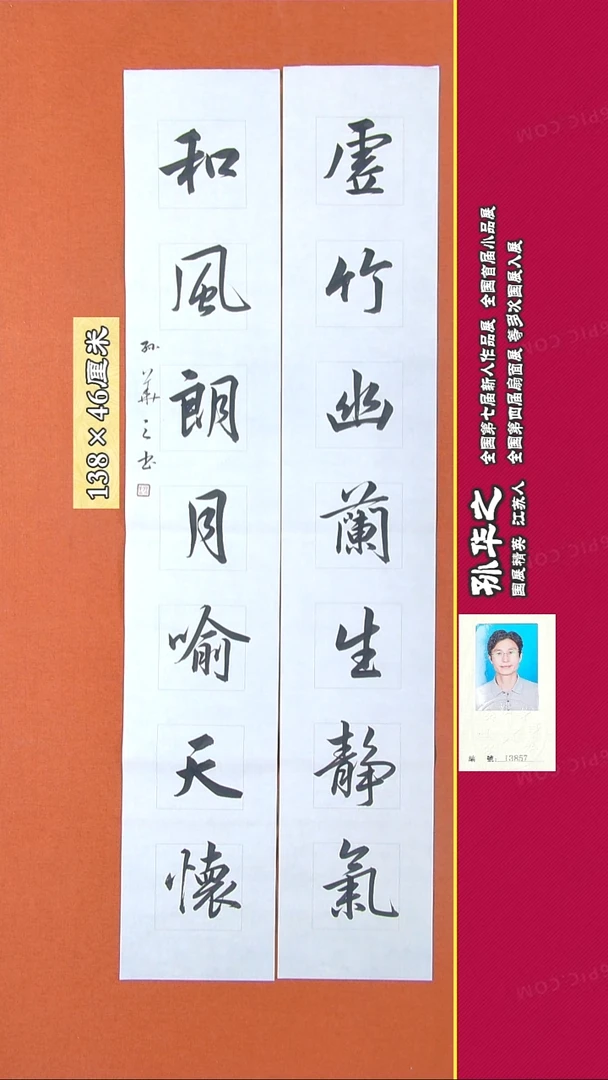 虚竹幽蘭生静氣
和風朗月喻天懷
孙華之书
138×46厘米
孙华之
国展精英 江苏人
全国第七届新人作品展 全国首届小品展
全国第四届扇面展 等多次国展入展
編 號: 13857
PIC.COM
PIC.COM
PIC.COM
PIC.COM
PIC.COM